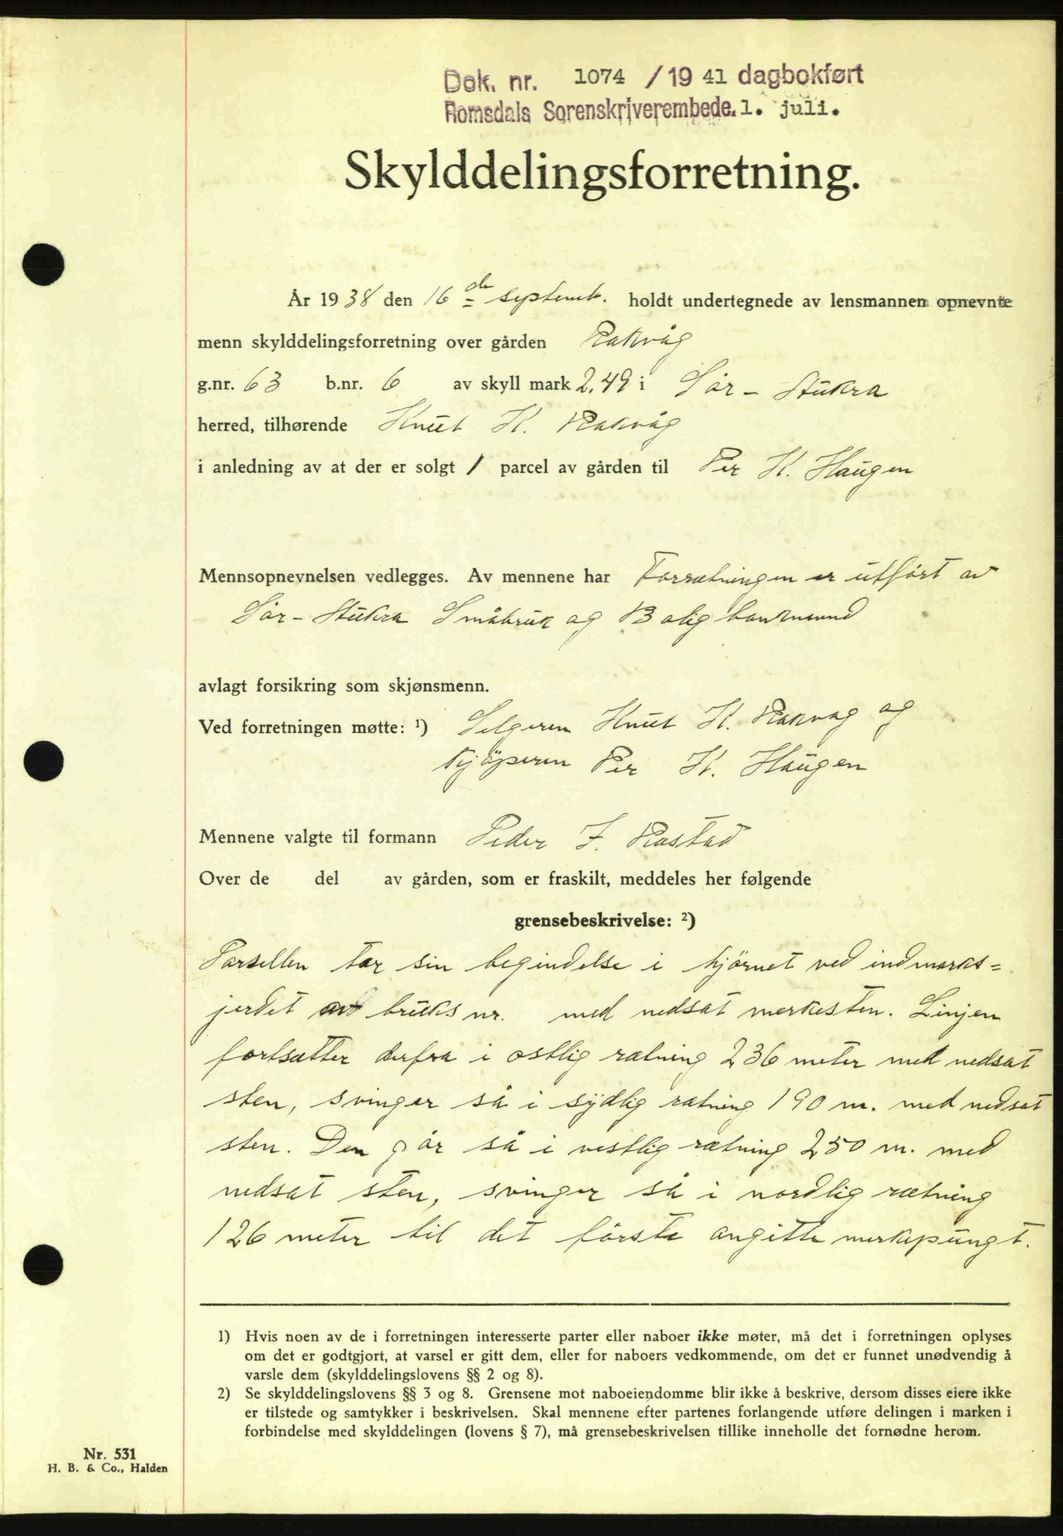 Dok. nr. 1074 /19 41 dagbokført
Romsdals Sorenskriverembede. 1. juli.
Skylddelingsforretning.
År 1938 den 16de septemb. holdt undertegnede av lensmannen opnevnte
menn skylddelingsforretning over gården Rakvåg
g.nr. 63 b.nr. 6 av skyll mark 2,49 i Sør-Aukra
herred, tilhørende Knut K. Rakvåg
i anledning av at der er solgt 1 parcel av gården til Per K. Haugen
Mennsopnevnelsen vedlegges. Av mennene har Forretningen er utført av
Sør-Aukra Småbruk og Bolig banknevnd
avlagt forsikring som skjønsmenn.
Ved forretningen møtte: ¹) Selgeren Knut K. Rakvåg og
Kjøperen Per K. Haugen
Mennene valgte til formann Peder J. Rastad
Over de del av gården, som er fraskilt, meddeles her følgende
grensebeskrivelse: ²)
Parsellen tar sin begindelse i hjørnet ved indmarks=
jerdet bruks nr. med nedsat merkesten. Linjen
fortsætter derfra i østlig rætning 236 meter med nedsat
sten, svinger så i sydlig rætning 190 m. med nedsat
sten. Den går så i vestlig rætning 250 m. med
nedsat sten, svinger så i nordlig rætning
126 meter til det første angitte merkepungt.
1) Hvis noen av de i forretningen interesserte parter eller naboer ikke møter, må det i forretningen oplyses
om det er godtgjort, at varsel er gitt dem, eller for naboers vedkommende, om det er funnet unødvendig å
varsle dem (skylddelingslovens §§ 2 og 8).
2) Se skylddelingslovens §§ 3 og 8. Grensene mot naboeiendomme blir ikke å beskrive, dersom disses eiere ikke
er tilstede og samtykker i beskrivelsen. Skal mennene efter partenes forlangende utføre delingen i marken i
forbindelse med skylddelingen (lovens § 7), må grensebeskrivelsen tillike inneholle det fornødne herom.
Nr. 531
H. B. & Co., Halden